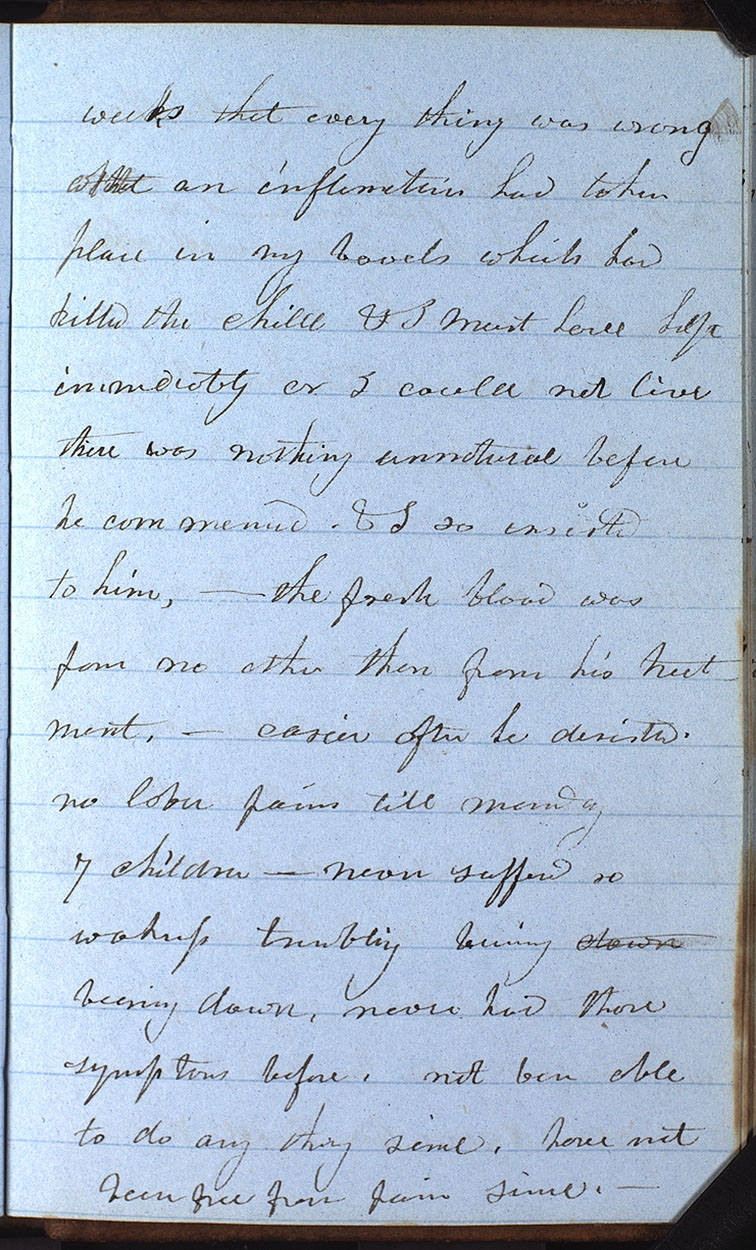 weeks that every thing was wrong
an inflamation had taken
place in my bowels which had
killed the child & I must have help
immediately or I could not live
there was nothing unnatural before
he commenced. & I so insisted
to him, — the fresh blood was
from no other then from his treat
ment, — easier after he desisted.
no labor pains till monday
7 children — never suffered so
wakefulness trembling bearing down
bearing down, never had those
symptoms before. not been able
to do any thing since, have not
been free from pain since. —